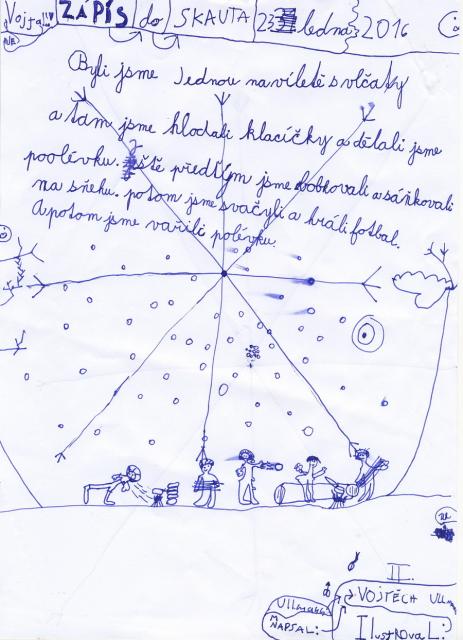 Vojta ZÁPIS do SKAUTA 23 ledna 2016
Byli jsme Jednou na víletě s vlčaty
a tam jsme hledali klacíčky a dělali jsme
poolévku. ještě předtým jsme bobkovali a sáňkovali
na sňehu. potom jsme svačyli a hráli fotbal.
A potom jsme vařili polévku.
II.
VOJTĚCH
NAPSAL:
IlustKoval: